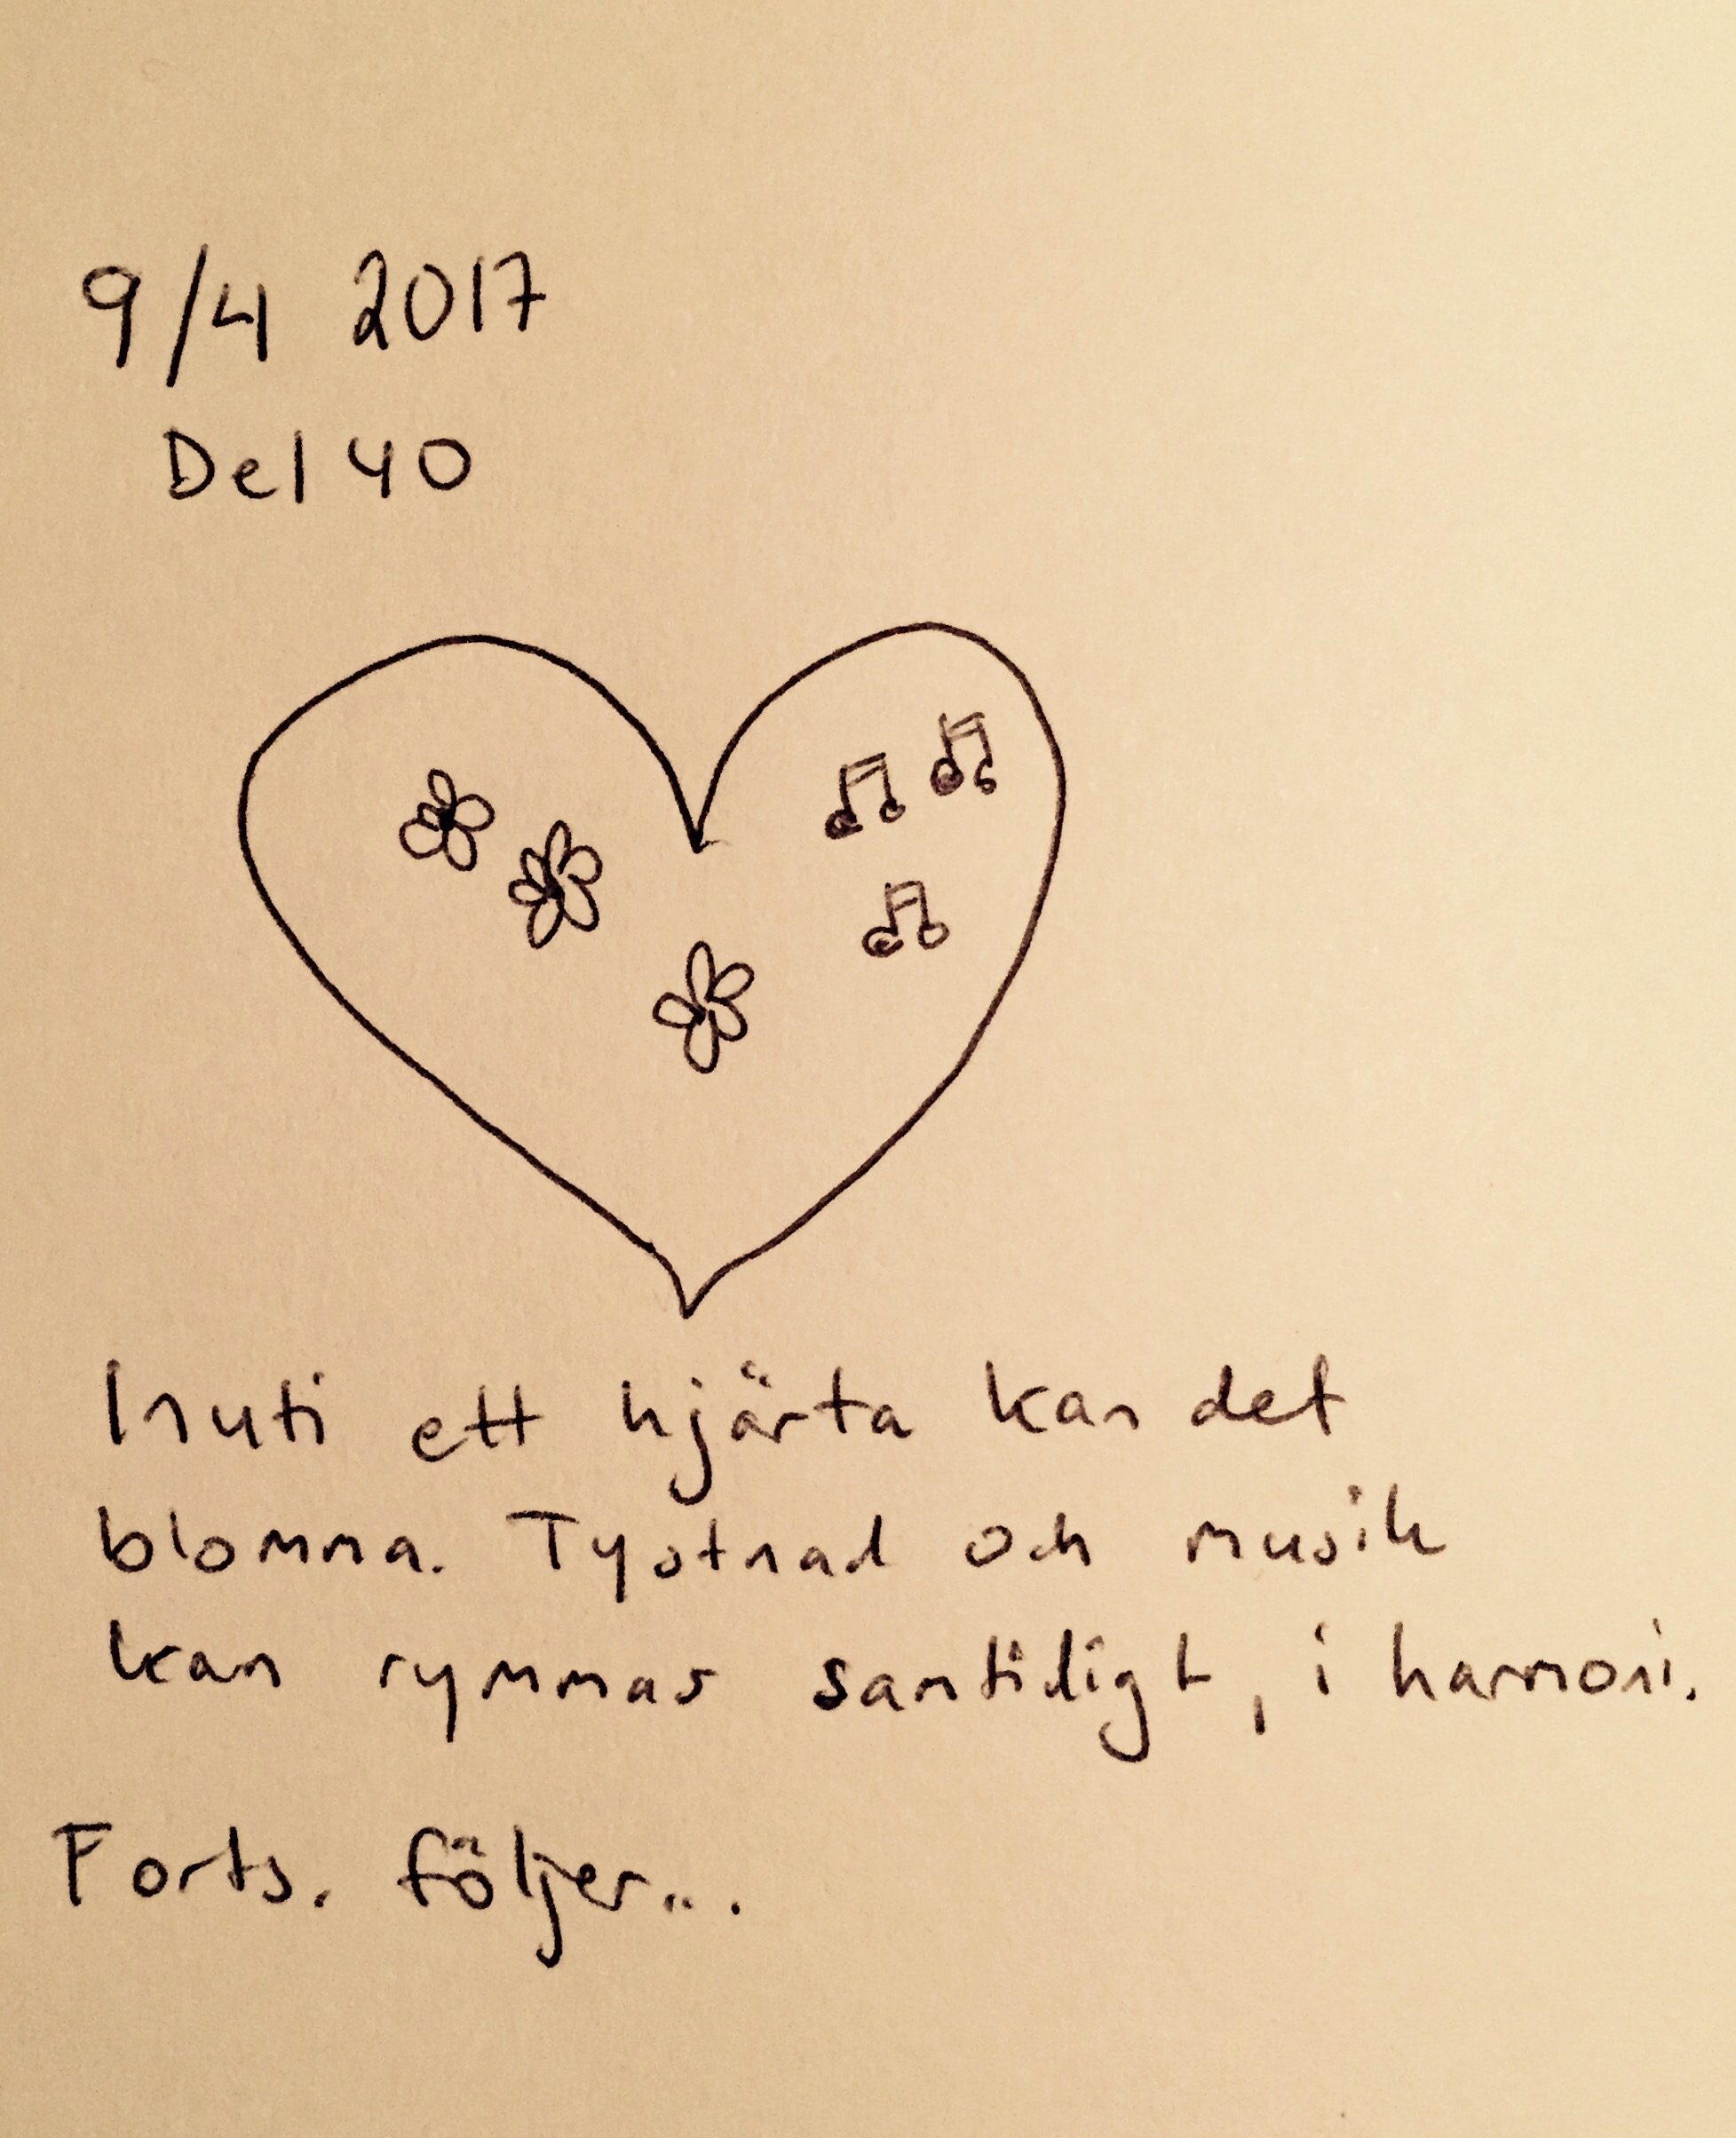 9/4 2017
Del 40
Inuti ett hjärta kan det
blomma. Tystnad och musik
kan rymmas samtidigt, i harmoni.
Forts. följer...